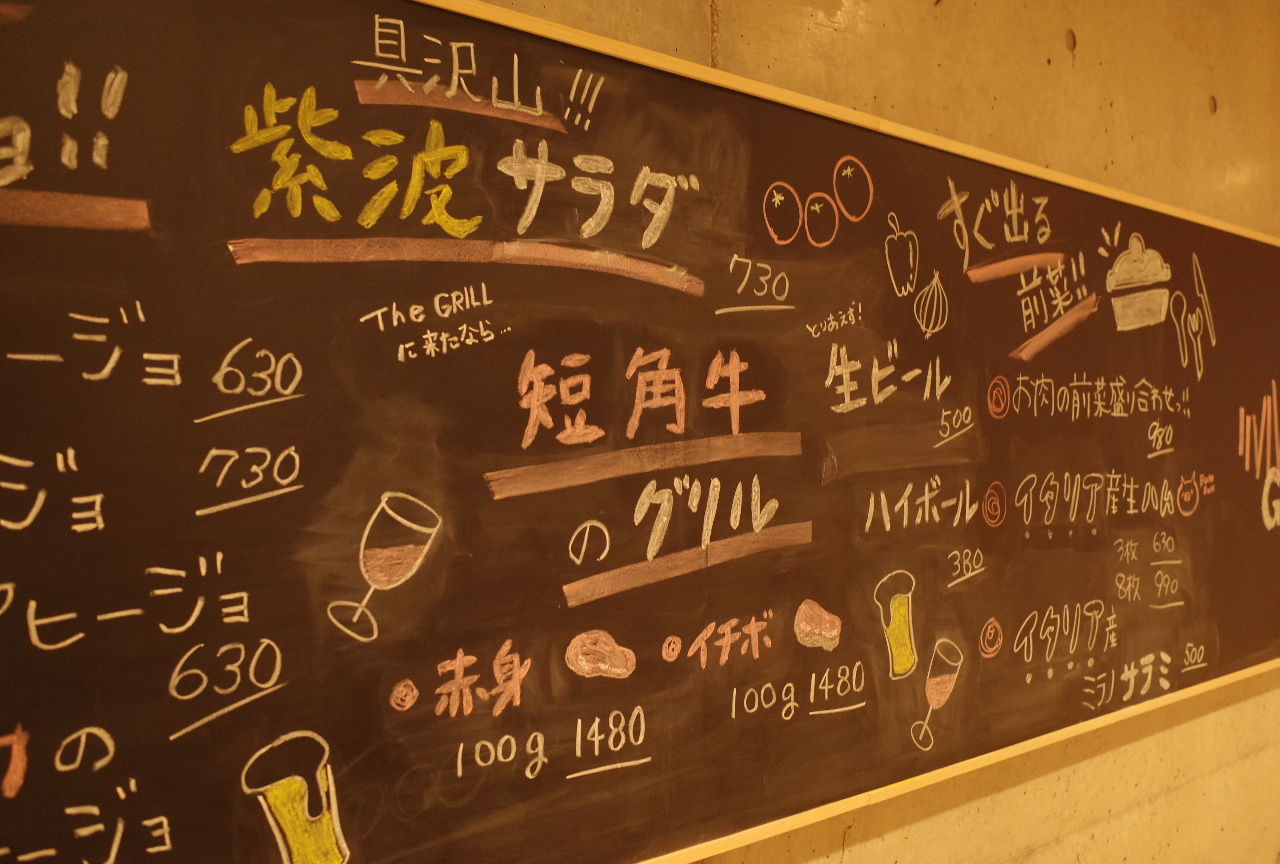 !!
ージョ 630
ジョ 730
アヒージョ
630
の
ージョ
具沢山!!!
紫波サラダ
730
The GRILL
に来たなら…
短角牛
のグリル
赤身
100g 1480
イチボ
100g 1480
とりあえず!
生ビール
500
ハイボール
380
すぐ出る
前菜!!
お肉の前菜盛り合わせっ!!
980
イタリア産生ハム
3枚 630
8枚 990
イタリア産
ミラノサラミ 500